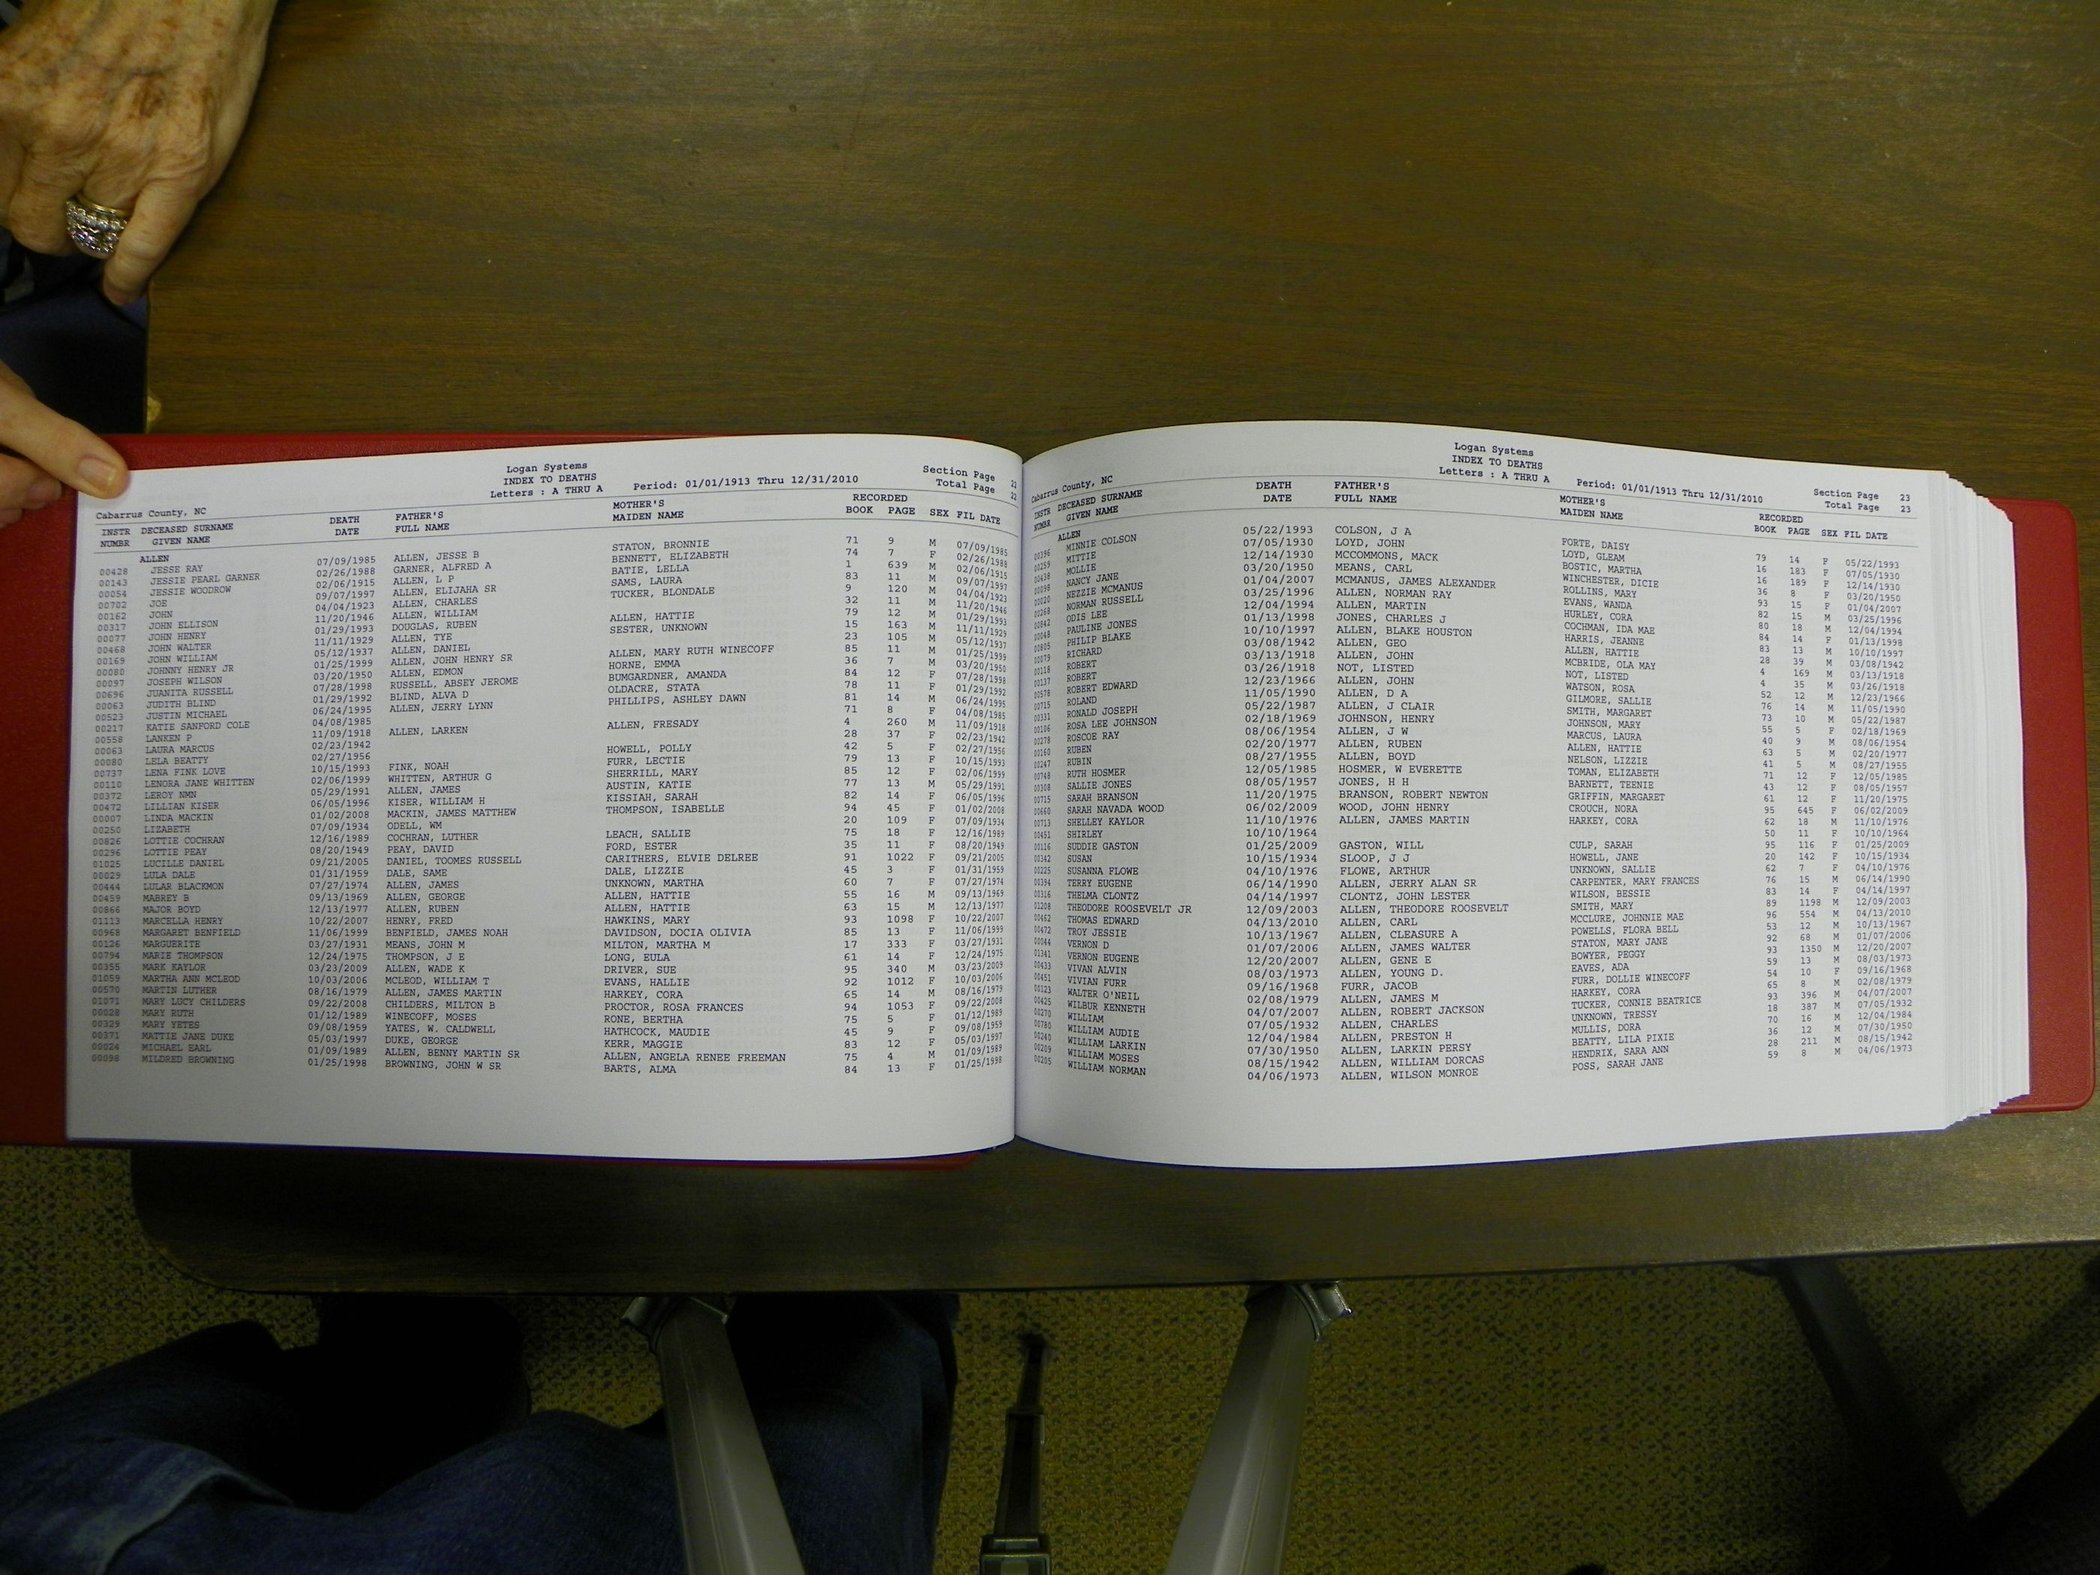 Logan Systems
INDEX TO DEATHS
Letters : A THRU A
Period: 01/01/1913 Thru 12/31/2010
Section Page 22
Total Page 22
Cabarrus County, NC
INSTR NUMBR DECEASED SURNAME GIVEN NAME DEATH DATE FATHER'S FULL NAME MOTHER'S MAIDEN NAME RECORDED BOOK PAGE SEX FIL DATE
ALLEN
00428 JESSE RAY 07/09/1985 ALLEN, JESSE B STATON, BRONNIE 71 9 M 07/09/1985
00143 JESSIE PEARL GARNER 02/26/1988 GARNER, ALFRED A BENNETT, ELIZABETH 74 7 F 02/26/1988
00054 JESSIE WOODROW 02/06/1915 ALLEN, L P BATIE, LELLA 1 639 M 02/06/1915
00702 JOE 09/07/1997 ALLEN, ELIJAHA SR SAMS, LAURA 83 11 M 09/07/1997
00162 JOHN 04/04/1923 ALLEN, CHARLES TUCKER, BLONDALE 9 120 M 04/04/1923
00317 JOHN ELLISON 11/20/1946 ALLEN, WILLIAM 32 11 M 11/20/1946
00077 JOHN HENRY 01/29/1993 DOUGLAS, RUBEN ALLEN, HATTIE 79 12 M 01/29/1993
00468 JOHN WALTER 11/11/1929 ALLEN, TYE SESTER, UNKNOWN 15 163 M 11/11/1929
00169 JOHN WILLIAM 05/12/1937 ALLEN, DANIEL 23 105 M 05/12/1937
00080 JOHNNY HENRY JR 01/25/1999 ALLEN, JOHN HENRY SR ALLEN, MARY RUTH WINECOFF 85 11 M 01/25/1999
00097 JOSEPH WILSON 03/20/1950 ALLEN, EDMON HORNE, EMMA 36 7 M 03/20/1950
00696 JUANITA RUSSELL 07/28/1998 RUSSELL, ABSEY JEROME BUMGARDNER, AMANDA 84 12 F 07/28/1998
00063 JUDITH BLIND 01/29/1992 BLIND, ALVA D OLDACRE, STATA 78 11 F 01/29/1992
00523 JUSTIN MICHAEL 06/24/1995 ALLEN, JERRY LYNN PHILLIPS, ASHLEY DAWN 81 14 M 06/24/1995
00217 KATIE SANFORD COLE 04/08/1985 71 8 F 04/08/1985
00558 LANKEN P 11/09/1918 ALLEN, LARKEN ALLEN, FRESADY 4 260 M 11/09/1918
00063 LAURA MARCUS 02/23/1942 28 37 F 02/23/1942
00080 LELA BEATTY 02/27/1956 HOWELL, POLLY 42 5 F 02/27/1956
00737 LENA FINK LOVE 10/15/1993 FINK, NOAH FURR, LECTIE 79 13 F 10/15/1993
00110 LENORA JANE WHITTEN 02/06/1999 WHITTEN, ARTHUR G SHERRILL, MARY 85 12 F 02/06/1999
00372 LEROY NMN 05/29/1991 ALLEN, JAMES AUSTIN, KATIE 77 13 M 05/29/1991
00472 LILLIAN KISER 06/05/1996 KISER, WILLIAM H KISSIAH, SARAH 82 14 F 06/05/1996
00007 LINDA MACKIN 01/02/2008 MACKIN, JAMES MATTHEW THOMPSON, ISABELLE 94 45 F 01/02/2008
00250 LIZABETH 07/09/1934 ODELL, WM 20 109 F 07/09/1934
00826 LOTTIE COCHRAN 12/16/1989 COCHRAN, LUTHER LEACH, SALLIE 75 18 F 12/16/1989
00296 LOTTIE PEAY 08/20/1949 PEAY, DAVID FORD, ESTER 35 11 F 08/20/1949
01025 LUCILLE DANIEL 09/21/2005 DANIEL, TOOMES RUSSELL CARITHERS, ELVIE DELREE 91 1022 F 09/21/2005
00029 LULA DALE 01/31/1959 DALE, SAME DALE, LIZZIE 45 3 F 01/31/1959
00444 LULAR BLACKMON 07/27/1974 ALLEN, JAMES UNKNOWN, MARTHA 60 7 F 07/27/1974
00459 MABREY B 09/13/1969 ALLEN, GEORGE ALLEN, HATTIE 55 16 M 09/13/1969
00866 MAJOR BOYD 12/13/1977 ALLEN, RUBEN ALLEN, HATTIE 63 15 M 12/13/1977
01113 MARCELLA HENRY 10/22/2007 HENRY, FRED HAWKINS, MARY 93 1098 F 10/22/2007
00968 MARGARET BENFIELD 11/06/1999 BENFIELD, JAMES NOAH DAVIDSON, DOCIA OLIVIA 85 13 F 11/06/1999
00126 MARGUERITE 03/27/1931 MEANS, JOHN M MILTON, MARTHA M 17 333 F 03/27/1931
00794 MARIE THOMPSON 12/24/1975 THOMPSON, J E LONG, EULA 61 14 F 12/24/1975
00355 MARK KAYLOR 03/23/2009 ALLEN, WADE K DRIVER, SUE 95 340 M 03/23/2009
01059 MARTHA ANN MCLEOD 10/03/2006 MCLEOD, WILLIAM T EVANS, HALLIE 92 1012 F 10/03/2006
00570 MARTIN LUTHER 08/16/1979 ALLEN, JAMES MARTIN HARKEY, CORA 65 14 M 08/16/1979
01071 MARY LUCY CHILDERS 09/22/2008 CHILDERS, MILTON B PROCTOR, ROSA FRANCES 94 1053 F 09/22/2008
00028 MARY RUTH 01/12/1989 WINECOFF, MOSES RONE, BERTHA 75 5 F 01/12/1989
00329 MARY YETES 09/08/1959 YATES, W. CALDWELL HATHCOCK, MAUDIE 45 9 F 09/08/1959
00371 MATTIE JANE DUKE 05/03/1997 DUKE, GEORGE KERR, MAGGIE 83 12 F 05/03/1997
00024 MICHAEL EARL 01/09/1989 ALLEN, BENNY MARTIN SR ALLEN, ANGELA RENEE FREEMAN 75 4 M 01/09/1989
00098 MILDRED BROWNING 01/25/1998 BROWNING, JOHN W SR BARTS, ALMA 84 13 F 01/25/1998
Logan Systems
INDEX TO DEATHS
Letters : A THRU A
Period: 01/01/1913 Thru 12/31/2010
Section Page 23
Total Page 23
Cabarrus County, NC
INSTR NUMBR DECEASED SURNAME GIVEN NAME DEATH DATE FATHER'S FULL NAME MOTHER'S MAIDEN NAME RECORDED BOOK PAGE SEX FIL DATE
ALLEN
00396 MINNIE COLSON 05/22/1993 COLSON, J A FORTE, DAISY 79 14 F 05/22/1993
00259 MITTIE 07/05/1930 LOYD, JOHN LOYD, GLEAM 16 183 F 07/05/1930
00438 MOLLIE 12/14/1930 MCCOMMONS, MACK BOSTIC, MARTHA 16 189 F 12/14/1930
00098 NANCY JANE 03/20/1950 MEANS, CARL WINCHESTER, DICIE 36 8 F 03/20/1950
00020 NEZZIE MCMANUS 01/04/2007 MCMANUS, JAMES ALEXANDER ROLLINS, MARY 93 15 F 01/04/2007
00268 NORMAN RUSSELL 03/25/1996 ALLEN, NORMAN RAY EVANS, WANDA 82 15 M 03/25/1996
00842 ODIS LEE 12/04/1994 ALLEN, MARTIN HURLEY, CORA 80 18 M 12/04/1994
00048 PAULINE JONES 01/13/1998 JONES, CHARLES J COCHMAN, IDA MAE 84 14 F 01/13/1998
00805 PHILIP BLAKE 10/10/1997 ALLEN, BLAKE HOUSTON HARRIS, JEANNE 83 13 M 10/10/1997
00079 RICHARD 03/08/1942 ALLEN, GEO ALLEN, HATTIE 28 39 M 03/08/1942
00118 ROBERT 03/13/1918 ALLEN, JOHN MCBRIDE, OLA MAY 4 169 M 03/13/1918
00137 ROBERT 03/26/1918 NOT, LISTED NOT, LISTED 4 35 M 03/26/1918
00578 ROBERT EDWARD 12/23/1966 ALLEN, JOHN WATSON, ROSA 52 12 M 12/23/1966
00715 ROLAND 11/05/1990 ALLEN, D A GILMORE, SALLIE 76 14 M 11/05/1990
00331 RONALD JOSEPH 05/22/1987 ALLEN, J CLAIR SMITH, MARGARET 73 10 M 05/22/1987
00106 ROSA LEE JOHNSON 02/18/1969 JOHNSON, HENRY JOHNSON, MARY 55 5 F 02/18/1969
00278 ROSCOE RAY 08/06/1954 ALLEN, J W MARCUS, LAURA 40 9 M 08/06/1954
00160 RUBEN 02/20/1977 ALLEN, RUBEN ALLEN, HATTIE 63 5 M 02/20/1977
00247 RUBIN 08/27/1955 ALLEN, BOYD NELSON, LIZZIE 41 5 M 08/27/1955
00748 RUTH HOSMER 12/05/1985 HOSMER, W EVERETTE TOMAN, ELIZABETH 71 12 F 12/05/1985
00308 SALLIE JONES 08/05/1957 JONES, H H BARNETT, TEENIE 43 12 F 08/05/1957
00715 SARAH BRANSON 11/20/1975 BRANSON, ROBERT NEWTON GRIFFIN, MARGARET 61 12 F 11/20/1975
00660 SARAH NAVADA WOOD 06/02/2009 WOOD, JOHN HENRY CROUCH, NORA 95 645 F 06/02/2009
00713 SHELLEY KAYLOR 11/10/1976 ALLEN, JAMES MARTIN HARKEY, CORA 62 18 M 11/10/1976
00451 SHIRLEY 10/10/1964 50 11 F 10/10/1964
00116 SUDDIE GASTON 01/25/2009 GASTON, WILL CULP, SARAH 95 116 F 01/25/2009
00342 SUSAN 10/15/1934 SLOOP, J J HOWELL, JANE 20 142 F 10/15/1934
00225 SUSANNA FLOWE 04/10/1976 FLOWE, ARTHUR UNKNOWN, SALLIE 62 7 F 04/10/1976
00394 TERRY EUGENE 06/14/1990 ALLEN, JERRY ALAN SR CARPENTER, MARY FRANCES 76 15 M 06/14/1990
00316 THELMA CLONTZ 04/14/1997 CLONTZ, JOHN LESTER WILSON, BESSIE 83 14 F 04/14/1997
01208 THEODORE ROOSEVELT JR 12/09/2003 ALLEN, THEODORE ROOSEVELT SMITH, MARY 89 1198 M 12/09/2003
00462 THOMAS EDWARD 04/13/2010 ALLEN, CARL MCCLURE, JOHNNIE MAE 96 554 M 04/13/2010
00472 TROY JESSIE 10/13/1967 ALLEN, CLEASURE A POWELLS, FLORA BELL 53 12 M 10/13/1967
00044 VERNON D 01/07/2006 ALLEN, JAMES WALTER STATON, MARY JANE 92 68 M 01/07/2006
01341 VERNON EUGENE 12/20/2007 ALLEN, GENE E BOWYER, PEGGY 93 1350 M 12/20/2007
00433 VIVAN ALVIN 08/03/1973 ALLEN, YOUNG D. EAVES, ADA 59 13 M 08/03/1973
00451 VIVIAN FURR 09/16/1968 FURR, JACOB FURR, DOLLIE WINECOFF 54 10 F 09/16/1968
00123 WALTER O'NEIL 02/08/1979 ALLEN, JAMES M HARKEY, CORA 65 8 M 02/08/1979
00425 WILBUR KENNETH 04/07/2007 ALLEN, ROBERT JACKSON TUCKER, CONNIE BEATRICE 93 396 M 04/07/2007
00270 WILLIAM 07/05/1932 ALLEN, CHARLES UNKNOWN, TRESSY 18 387 M 07/05/1932
00780 WILLIAM AUDIE 12/04/1984 ALLEN, PRESTON H MULLIS, DORA 70 16 M 12/04/1984
00240 WILLIAM LARKIN 07/30/1950 ALLEN, LARKIN PERSY BEATTY, LILA PIXIE 36 12 M 07/30/1950
00209 WILLIAM MOSES 08/15/1942 ALLEN, WILLIAM DORCAS HENDRIX, SARA ANN 28 211 M 08/15/1942
00205 WILLIAM NORMAN 04/06/1973 ALLEN, WILSON MONROE POSS, SARAH JANE 59 8 M 04/06/1973